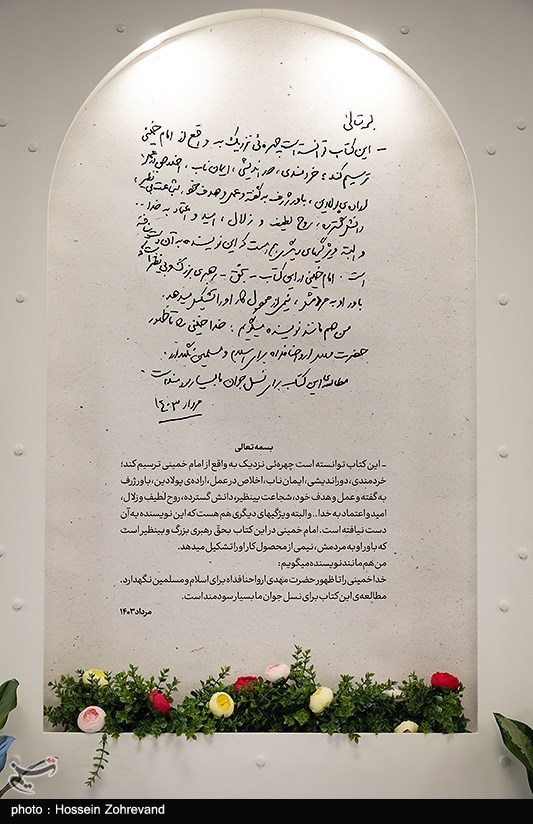 بسمه‌تعالی
- این کتاب توانسته است چهره‌ئی نزدیک به واقع از امام خمینی
ترسیم کند؛ خردمندی، دوراندیشی، ایمان ناب، اخلاص در عمل،
اراده‌ی پولادین، باور ژرف به گفته و عمل و هدف خود، شجاعت بینظیر،
دانش گسترده، روح لطیف و زلال، امید و اعتماد به خدا..
و البته ویژگیهای دیگری هم هست که این نویسنده به آن دست نیافته
است. امام خمینی در این کتاب - بحق - رهبری بزرگ و بی‌نظیر است که
باور او به مردمش، نیمی از محصول کار او را تشکیل میدهد.
من هم مانند نویسنده میگویم: خدا خمینی را تا ظهور
حضرت مهدی ارواحنا فداه برای اسلام و مسلمین نگهدارد.
مطالعه‌ی این کتاب برای نسل جوان ما بسیار سودمند است.
مرداد ۱۴۰۳
بسمه تعالی
- این کتاب توانسته است چهره‌ئی نزدیک به واقع از امام خمینی ترسیم کند؛
خردمندی، دوراندیشی، ایمان ناب، اخلاص در عمل، اراده‌ی پولادین، باور ژرف
به گفته و عمل و هدف خود، شجاعت بینظیر، دانش گسترده، روح لطیف و زلال،
امید و اعتماد به خدا.. و البته ویژگیهای دیگری هم هست که این نویسنده به آن
دست نیافته است. امام خمینی در این کتاب بحقّ رهبری بزرگ و بینظیر است
که باور او به مردمش، نیمی از محصول کار او را تشکیل میدهد.
من هم مانند نویسنده میگویم:
خدا خمینی را تا ظهور حضرت مهدی ارواحنا فداه برای اسلام و مسلمین نگهدارد.
مطالعه‌ی این کتاب برای نسل جوان ما بسیار سودمند است.
مرداد ۱۴۰۳
تسنیم
photo : Hossein Zohrevand